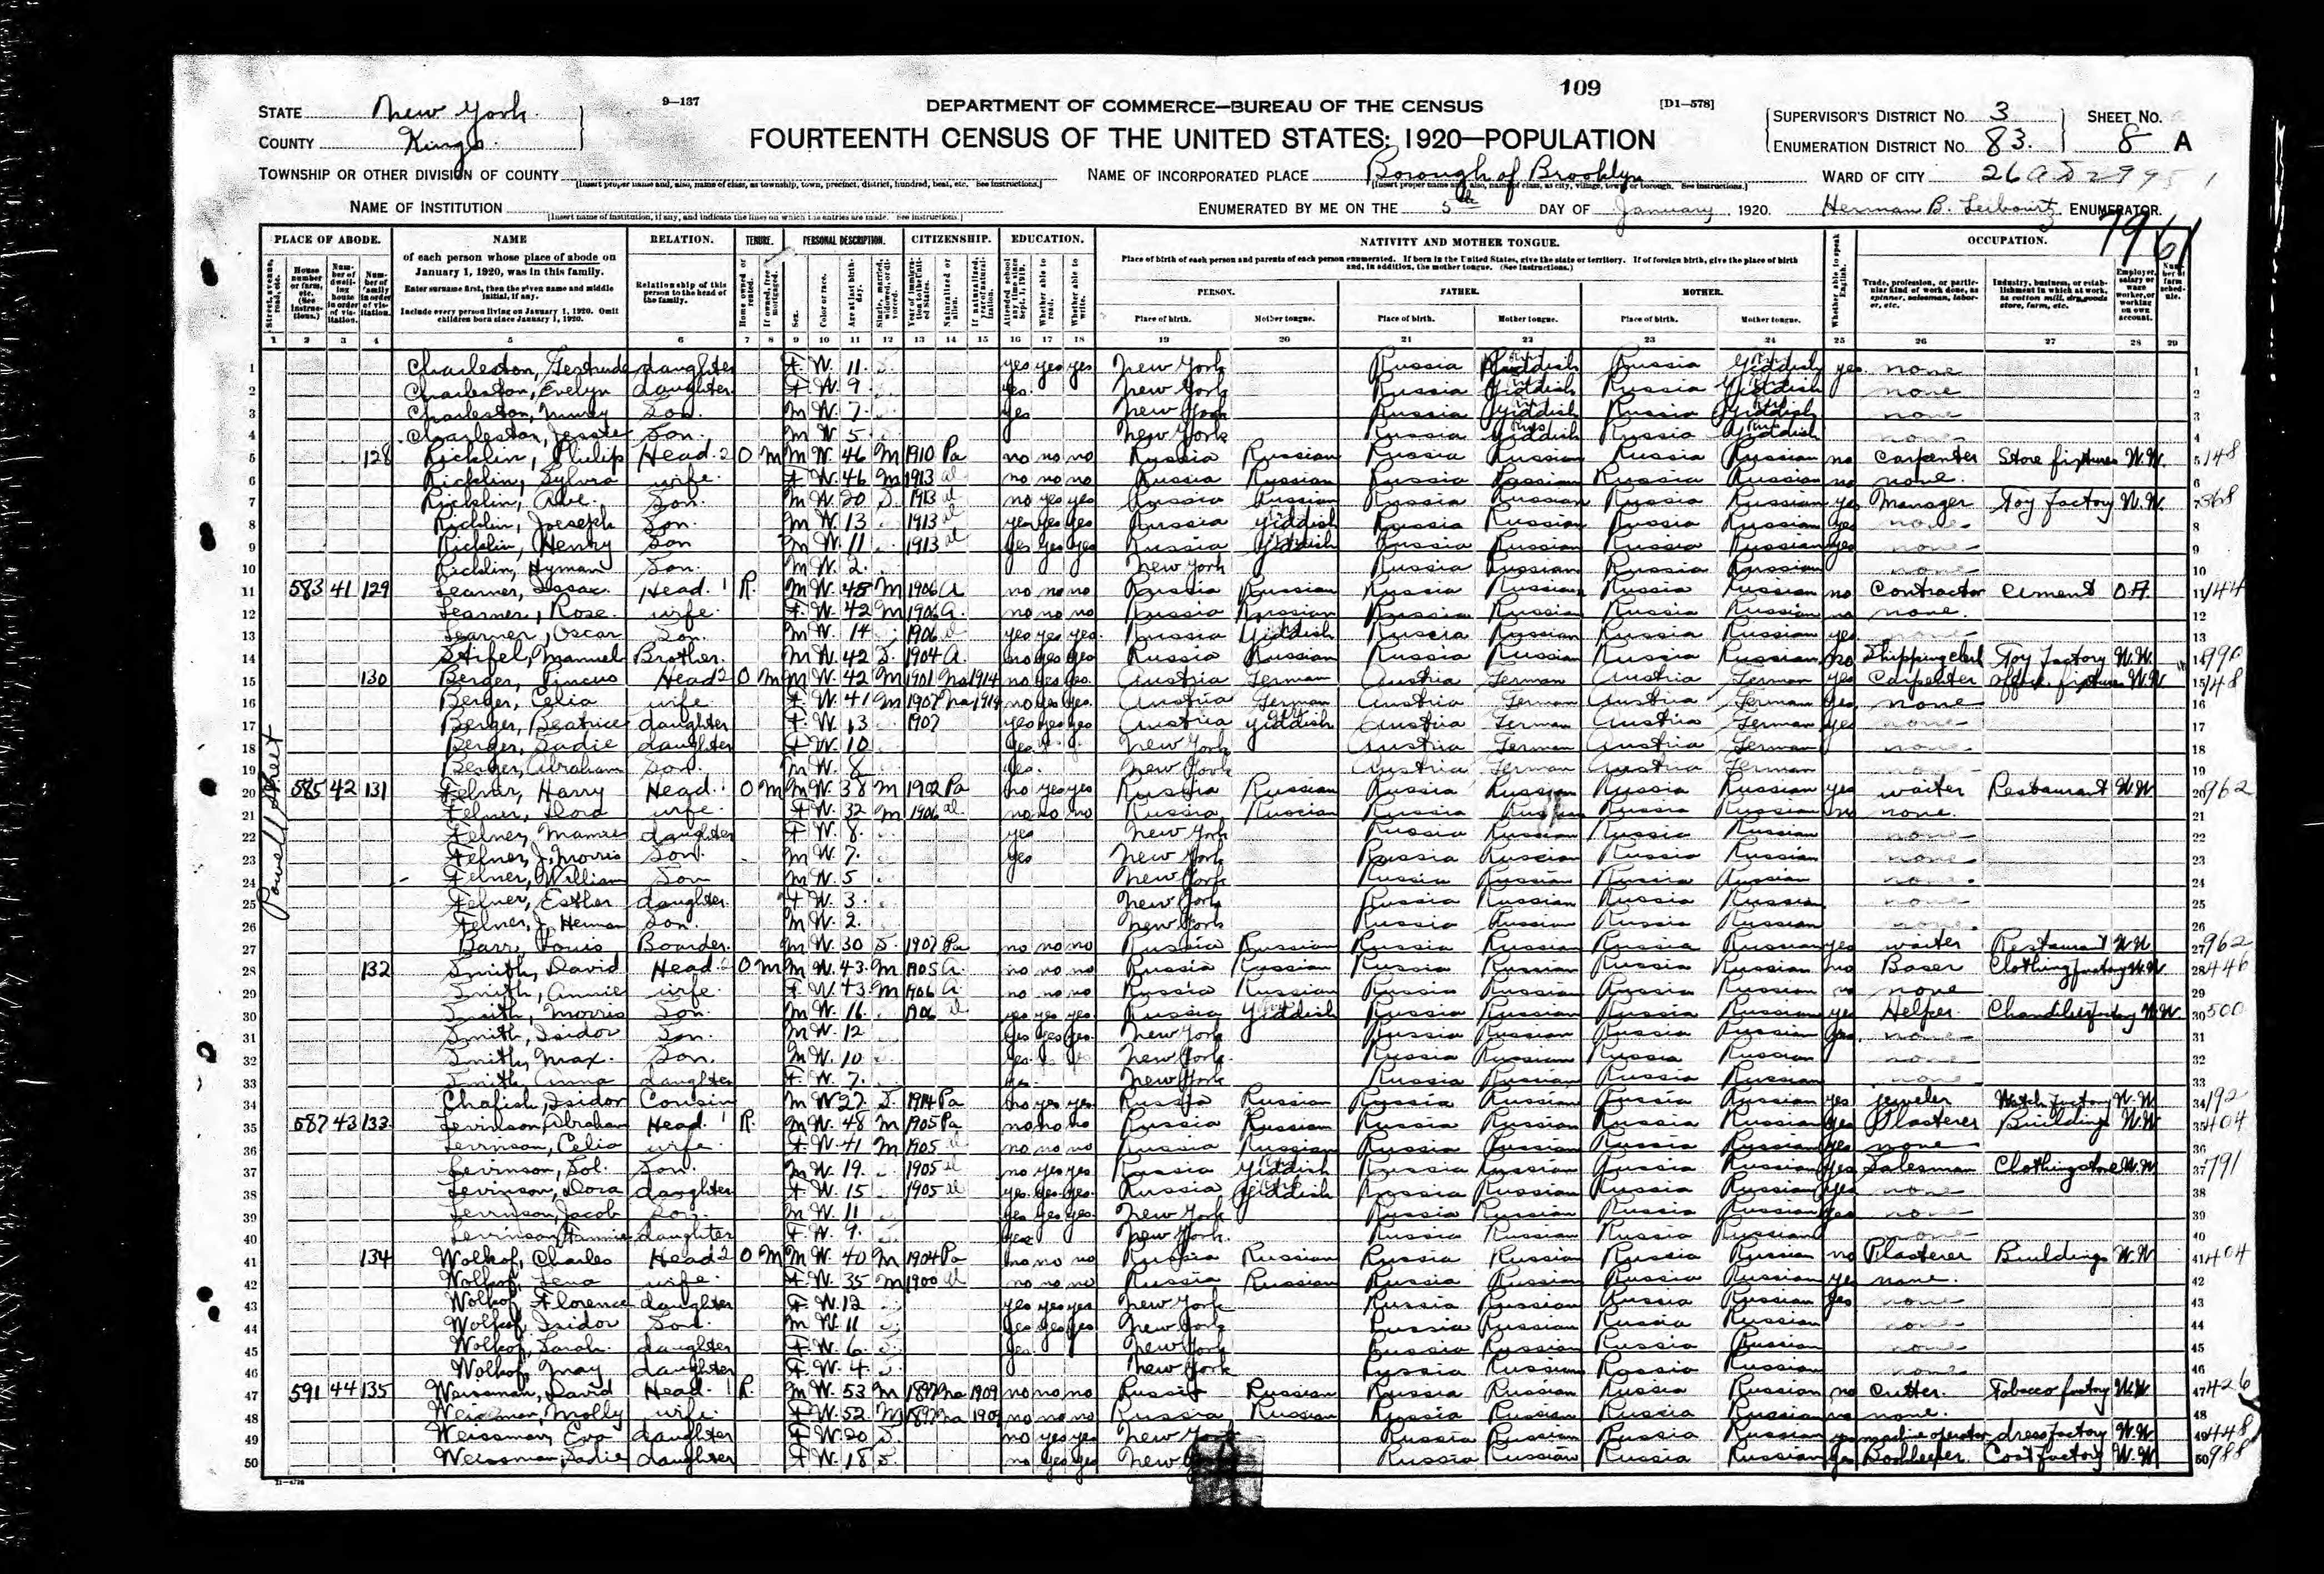 109
STATE New York. 9—137 DEPARTMENT OF COMMERCE—BUREAU OF THE CENSUS [D1—578] SUPERVISOR'S DISTRICT No. 3 SHEET No.
COUNTY Kings. FOURTEENTH CENSUS OF THE UNITED STATES: 1920—POPULATION ENUMERATION DISTRICT No. 83. 8 A
TOWNSHIP OR OTHER DIVISION OF COUNTY NAME OF INCORPORATED PLACE Borough of Brooklyn WARD OF CITY 26
[Insert proper name and, also, name of class, as township, town, precinct, district, hundred, beat, etc. See instructions.] [Insert proper name and, also, name of class, as city, village, town, or borough. See instructions.]
NAME OF INSTITUTION ENUMERATED BY ME ON THE 5th DAY OF January, 1920. Herman B. Leibowitz ENUMERATOR.
[Insert name of institution, if any, and indicate the lines on which the entries are made. See instructions.]
7961
PLACE OF ABODE. NAME RELATION. TENURE. PERSONAL DESCRIPTION. CITIZENSHIP. EDUCATION. NATIVITY AND MOTHER TONGUE. OCCUPATION.
of each person whose place of abode on January 1, 1920, was in this family.
Enter surname first, then the given name and middle initial, if any.
Include every person living on January 1, 1920. Omit children born since January 1, 1920.
Relationship of this person to the head of the family.
Place of birth of each person and parents of each person enumerated. If born in the United States, give the state or territory. If of foreign birth, give the place of birth and, in addition, the mother tongue. (See instructions.)
PERSON. FATHER. MOTHER.
Place of birth. Mother tongue. Place of birth. Mother tongue. Place of birth. Mother tongue.
1 2 3 4 5 6 7 8 9 10 11 12 13 14 15 16 17 18 19 20 21 22 23 24 25 26 27 28 29
Powell Street
1 Charleston, Gertrude daughter F W. 11 S. yes yes yes New York Russia Yiddish Russia Yiddish yes none 1
2 Charleston, Evelyn daughter F W. 9 yes New York Russia Yiddish Russia Yiddish none 2
3 Charleston, Son. M W. 7 yes New York Russia Yiddish Russia Yiddish none 3
4 Charleston, Son. M W 5 New York Russia Yiddish Russia Yiddish none 4
5 128 Ricklin, Philip Head 2 O M M W. 46 M 1910 Pa no no no Russia Russian Russia Russian Russia Russian no Carpenter Store fixtures W.W. 5 148
6 Ricklin, Sylvia wife. F W. 46 M 1913 al no no no Russia Russian Russia Russian Russia Russian no none. 6
7 Ricklin, Abe. Son. M W. 20 S. 1913 al no yes yes Russia Russian Russia Russian Russia Russian yes Manager Toy factory W.W. 7 368
8 Ricklin, Joeseph Son. M W. 13 1913 al yes yes yes Russia Yiddish Russia Russian Russia Russian yes none 8
9 Ricklin, Henry Son M W. 11 1913 al yes yes yes Russia Yiddish Russia Russian Russia Russian yes none 9
10 Ricklin, Hyman Son. M W. 2. New York Russia Russian Russia Russian none 10
11 583 41 129 Learner, Isaac. Head. 1 R. M W. 48 M 1906 A no no no Russia Russian Russia Russian Russia Russian no Contractor Cement O.A. 11 144
12 Learner, Rose. wife. F. W. 42 M 1906 A. no no no Russia Russian Russia Russian Russia Russian no none. 12
13 Learner, Oscar Son. M W. 14 1906 al yes yes yes Russia Yiddish Russia Russian Russia Russian yes none 13
14 Stifel, Manuel Brother. M W. 42 S. 1904 A. no yes yes Russia Russian Russia Russian Russia Russian no Shipping clerk Toy factory W.W. 14 990
15 130 Berger, Pincus Head 2 O M M W. 42 M 1901 Na 1914 no yes yes. Austria German Austria German Austria German yes Carpenter office fixtures W.W. 15 148
16 Berger, Celia wife F W. 41 M 1907 Na 1914 no yes yes. Austria German Austria German Austria German yes. none 16
17 Berger, Beatrice daughter F. W. 13 1907 yes yes yes Austria Yiddish Austria German Austria German yes none 17
18 Berger, Sadie daughter F W. 10 yes New York Austria German Austria German none 18
19 Berger, Abraham Son. M W. 8 yes. New York Austria German Austria German none 19
20 585 42 131 Felner, Harry Head. 1 O M M W. 38 M 1902 Pa no yes yes Russia Russian Russia Russian Russia Russian yes waiter Restaurant W.W. 20 962
21 Felner, Dora wife F W. 32 M 1906 al no no no Russia Russian Russia Russian Russia Russian no none. 21
22 Felner, Mamie daughter F W. 8. yes New York Russia Russian Russia Russian none 22
23 Felner, J. Morris Son. M W. 7. yes New York Russia Russian Russia Russian none 23
24 Felner, William Son M W. 5 New York Russia Russian Russia Russian none 24
25 Felner, Esther daughter. F W. 3. New York Russia Russian Russia Russian none 25
26 Felner, J. Herman Son. M W. 2. New York Russia Russian Russia Russian none 26
27 Barr, Louis Boarder. M W. 30 S. 1907 Pa no no no Russia Russian Russia Russian Russia Russian yes waiter Restaurant W.W. 27 962
28 132 Smith, David Head 2 O M M W. 43 M 1905 A. no no no Russia Russian Russia Russian Russia Russian no Baser Clothing factory W.W. 28 446
29 Smith, Annie wife. F. W. 43 M 1906 A. no no no Russia Russian Russia Russian Russia Russian no none 29
30 Smith, Morris Son. M W. 16 1906 al yes yes yes. Russia Yiddish Russia Russian Russia Russian yes Helper. W.W. 30 500
31 Smith, Isidor Son. M W. 12 yes yes yes. New York Russia Russian Russia Russian yes. none 31
32 Smith, Max. Son. M W. 10 yes New York. Russia Russian Russia Russian none 32
33 Smith, Anna daughter F. W. 7. yes. New York Russia Russian Russia Russian none 33
34 Chafish, Isidor Cousin M W 27 S. 1914 Pa no yes yes Russia Russian Russia Russian Russia Russian yes jeweler Watch factory W.W. 34 192
35 587 43 133 Levinson, Abraham Head. 1 R. M W. 48 M 1905 Pa no no no Russia Russian Russia Russian Russia Russian yes Plasterer Buildings W.W. 35 404
36 Levinson, Celia wife. F W. 41 M 1905 al no no no Russia Russian Russia Russian Russia Russian yes none 36
37 Levinson, Sol. Son. M W. 19. 1905 al no yes yes Russia Yiddish Russia Russian Russia Russian yes Salesman Clothing store W.W. 37 791
38 Levinson, Dora daughter F W. 15 1905 al yes yes yes. Russia Yiddish Russia Russian Russia Russian yes none 38
39 Levinson, Jacob Son. M W. 11 yes yes yes. New York Russia Russian Russia Russian yes none 39
40 Levinson, Fannie daughter F W. 9. yes New York. Russia Russian Russia Russian none 40
41 134 Wolkof, Charles Head 2 O M M W. 40 M 1904 Pa no no no Russia Russian Russia Russian Russia Russian no Plasterer Buildings W.W. 41 404
42 Wolkof, Lena wife. F W. 35 M 1900 al no no no Russia Russian Russia Russian Russia Russian yes none. 42
43 Wolkof, Florence daughter F W. 12 yes yes yes New York Russia Russian Russia Russian yes none 43
44 Wolkof, Isidor Son. M W. 11 yes yes yes New York Russia Russian Russia Russian none 44
45 Wolkof, Sarah. daughter F W. 6 yes. New York Russia Russian Russia Russian none 45
46 Wolkof, May daughter F W. 4 New York Russia Russian Russia Russian none 46
47 591 44 135 Weissman, David Head. 1 R. M W. 53 M 1897 Na 1909 no no no Russia Russian Russia Russian Russia Russian no Cutter. Tobacco factory W.W. 47 426
48 Weissman, Molly wife. F W. 52 M 1897 Na 1909 no no no Russia Russian Russia Russian Russia Russian no none. 48
49 Weissman, Eva daughter F W. 20 S. no yes yes New York Russia Russian Russia Russian yes machine operator dress factory W.W. 49 448
50 Weissman, Sadie daughter F W. 18 S. no yes yes New York Russia Russian Russia Russian yes Bookkeeper. Coat factory W.W. 50 988